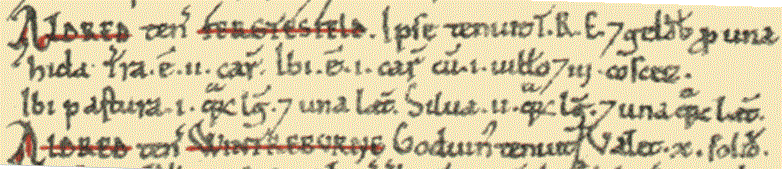 ALDRED ten̄ FERSTESFELD. Ipse tenuit T.R.E. ⁊ geldb̄ ꝓ una
hida. Tr̄a. ē. ii. car̄. Ibi. ē. i. car̄ cū. i. uillo ⁊ iij. coscez.
Ibi pastura. i. qᷓꝫ lḡ. ⁊ una lat̄. Silua. ii. qᷓꝫ lḡ. ⁊ una qᷓꝫ lat̄.
ALDRED ten̄ WINTREBVRNE Goduin̄ tenuit Valet. x. solid̄.